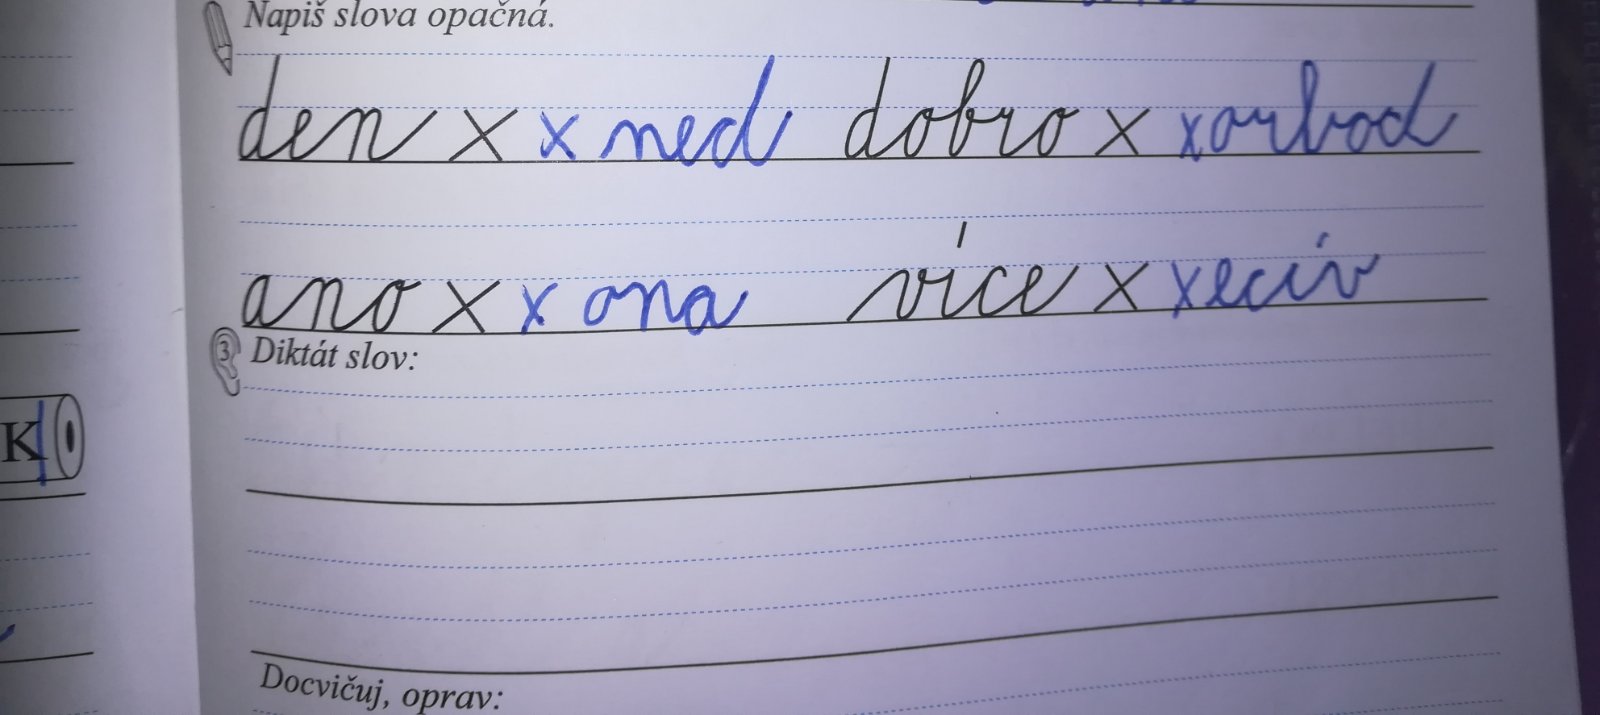 Napiš slova opačná.
den x x ned dobro x xorbod
ano x x ona více x xecív
3 Diktát slov:
K
Docvičuj, oprav: